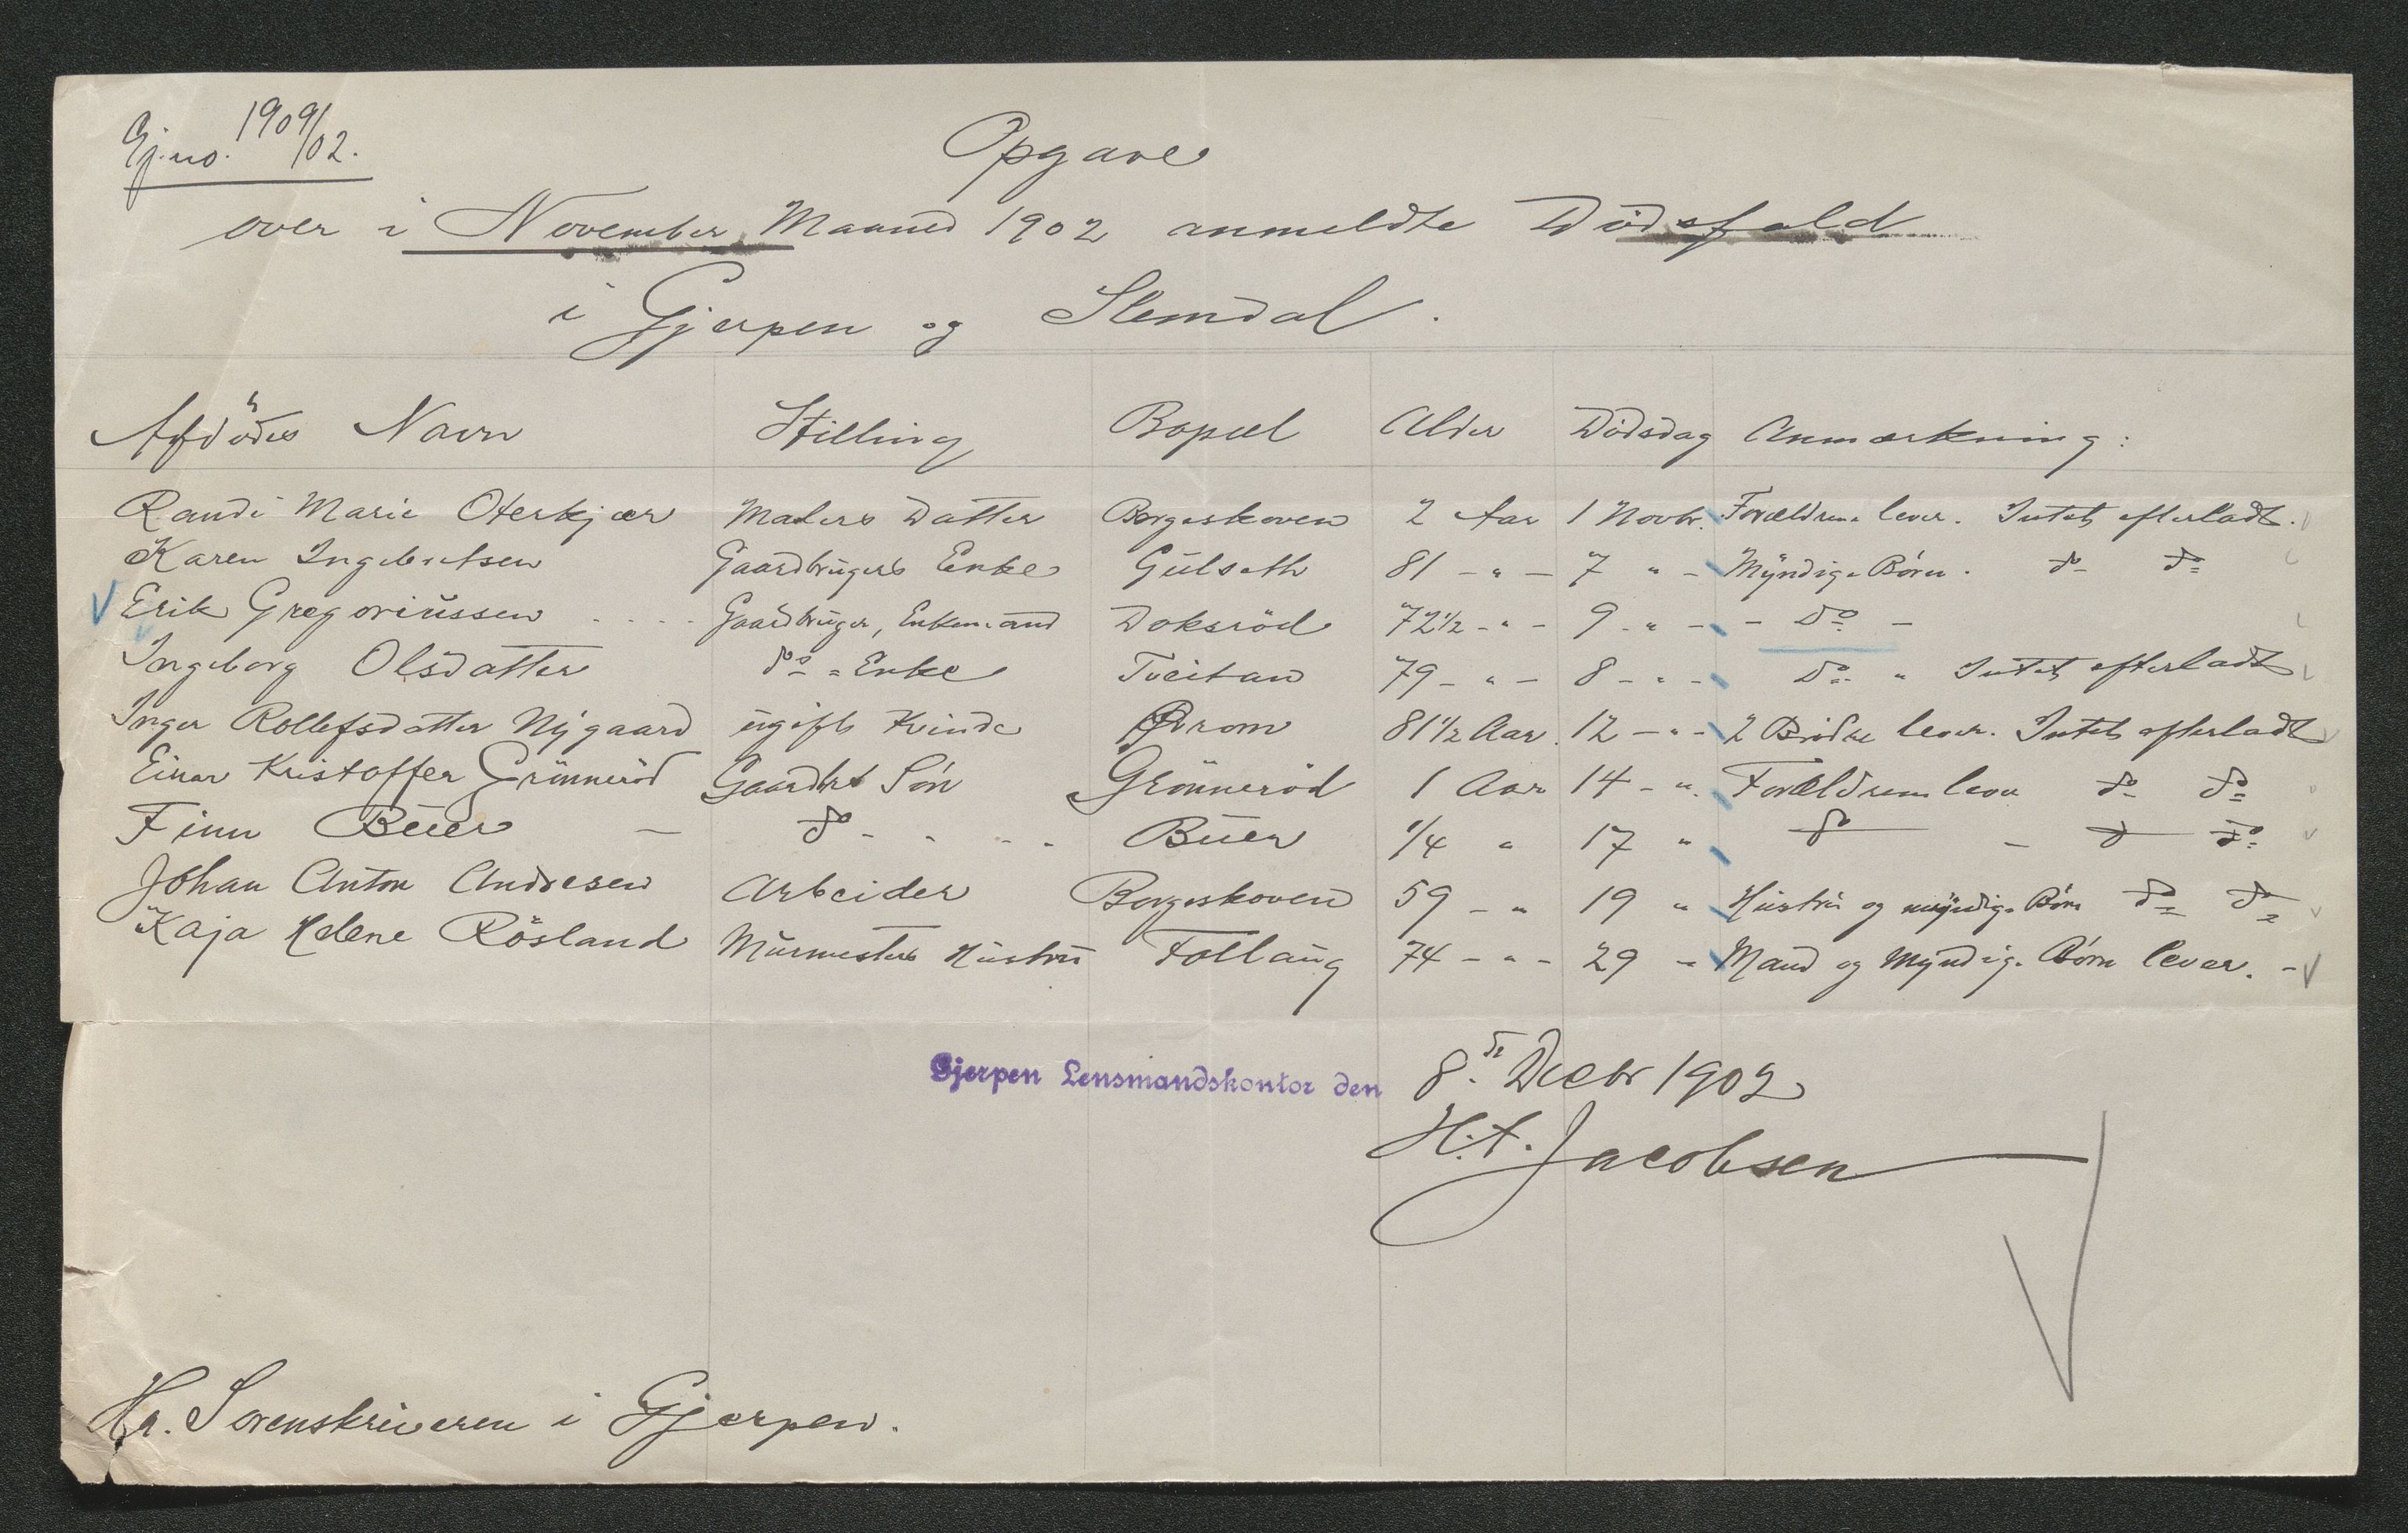 Gj.no. 1909/02.
Opgave
over i November Maaned 1902 anmeldte Dödsfald
i Gjerpen og Slemdal.
Afdödes Navn Stilling Bopæl Alder Dödsdag Anmærkning:
Randi Marie Oterkjær Malers Datter Borgeskoven 2 Aar 1 Novbr. Forældrene lever. Intet efterladt.
Karen Ingebretsen Gaardbrugers Enke Gulseth 81 - " - 7 " - Myndige Börn. do do
Erik Gregoriussen .... Gaardbruger, Enkemand Doksröd 72½ - " - 9 - " - - do -
Ingeborg Olsdatter do - Enke Tveitan 79 - " - 8 - " - do " Intet efterladt
Inger Rollefsdatter Nygaard ugift Kvinde Örom 81½ Aar. 12 - " - 2 Brödre lever. Intet efterladt
Einar Kristoffer Grönneröd Gaardbr Sön Grönneröd 1 Aar 14 - " Forældrene lever do do
Finn Buer - do - - - - Buer 1/4 " 17 " do - do do
Johan Anton Andresen Arbeider Borgeskoven 59 - " 19 " Hustru og myndige Börn do do
Kaja Helene Rösland Murmesters Hustru Follaug 74 - " - 29 - Mand og Myndige Börn lever. -
Gjerpen Lensmandskontor den 8de Decbr 1902
H.A. Jacobsen
Hr. Sorenskriveren i Gjerpen.